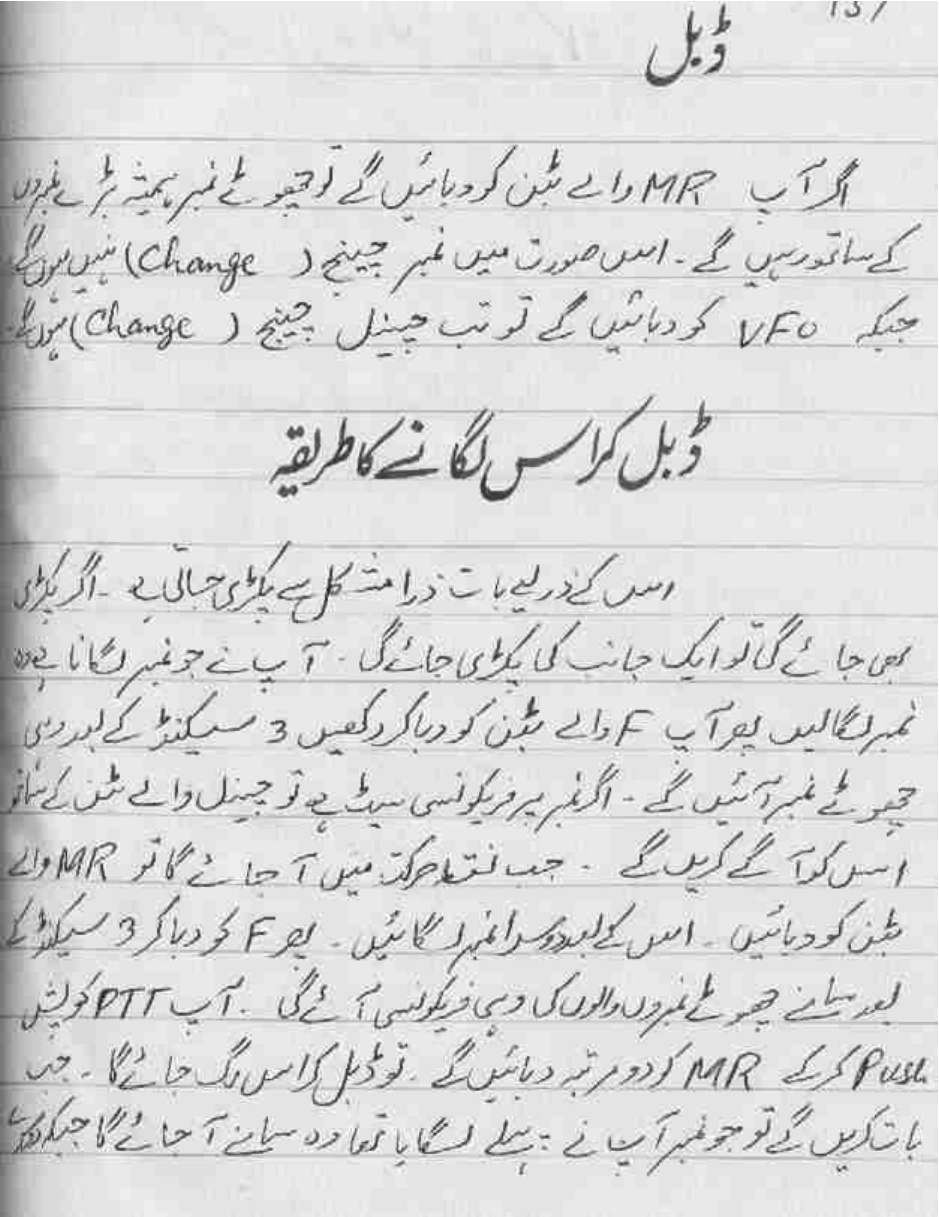 137
ڈبل
اگر آپ MR والے بٹن کو دبائیں گے تو چھوٹے نمبر ہمیشہ بڑے نمبروں
کے ساتھ رہیں گے ۔ اس صورت میں نمبر چینج ( Change ) نہیں ہوں گے
جبکہ VFO کو دبائیں گے تو تب چینل چینج ( Change ) ہوں گے۔
ڈبل کراس لگانے کا طریقہ
اس کے ذریعے بات ذرا مشکل سے پکڑی جاتی ہے ۔ اگر پکڑی
بھی جائے گی تو ایک جانب کی پکڑی جائے گی ۔ آپ نے جو نمبر لگانا ہے وہ
نمبر لگالیں پھر آپ F والے بٹن کو دبا کر رکھیں 3 سیکنڈ کے بعد وہی
چھوٹے نمبر آئیں گے ۔ اگر نمبر پر فریکونسی سیٹ ہے تو چینل والے بٹن کے ساتھ
اس کو آگے کریں گے ۔ جب نقطہ حرکت میں آ جائے گا تو MR والے
بٹن کو دبائیں ۔ اس کے بعد دوسرا نمبر لگائیں ۔ پھر F کو دبا کر 3 سیکنڈ کے
بعد سامنے چھوٹے نمبروں والوں کی وہی فریکونسی آئے گی ۔ آپ PTT کو پش
Push کر کے MR کو دو مرتبہ دبائیں گے ۔ تو ڈبل کراس لگ جائے گا ۔ جب
بات کریں گے تو جو نمبر آپ نے پہلے لگایا تھا وہ سامنے آ جائے گا جبکہ